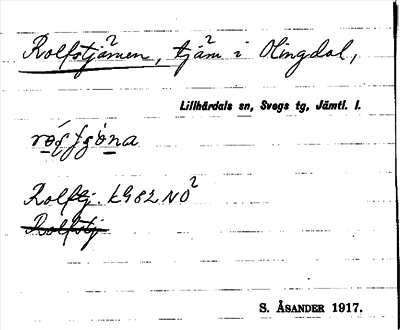 Rolfstjärnen, tjärn i Olingdal,
Lillhärdals sn, Svegs tg, Jämtl. l.
Rolftj. kG82 NO²
Rolfstj
S. ÅSANDER 1917.